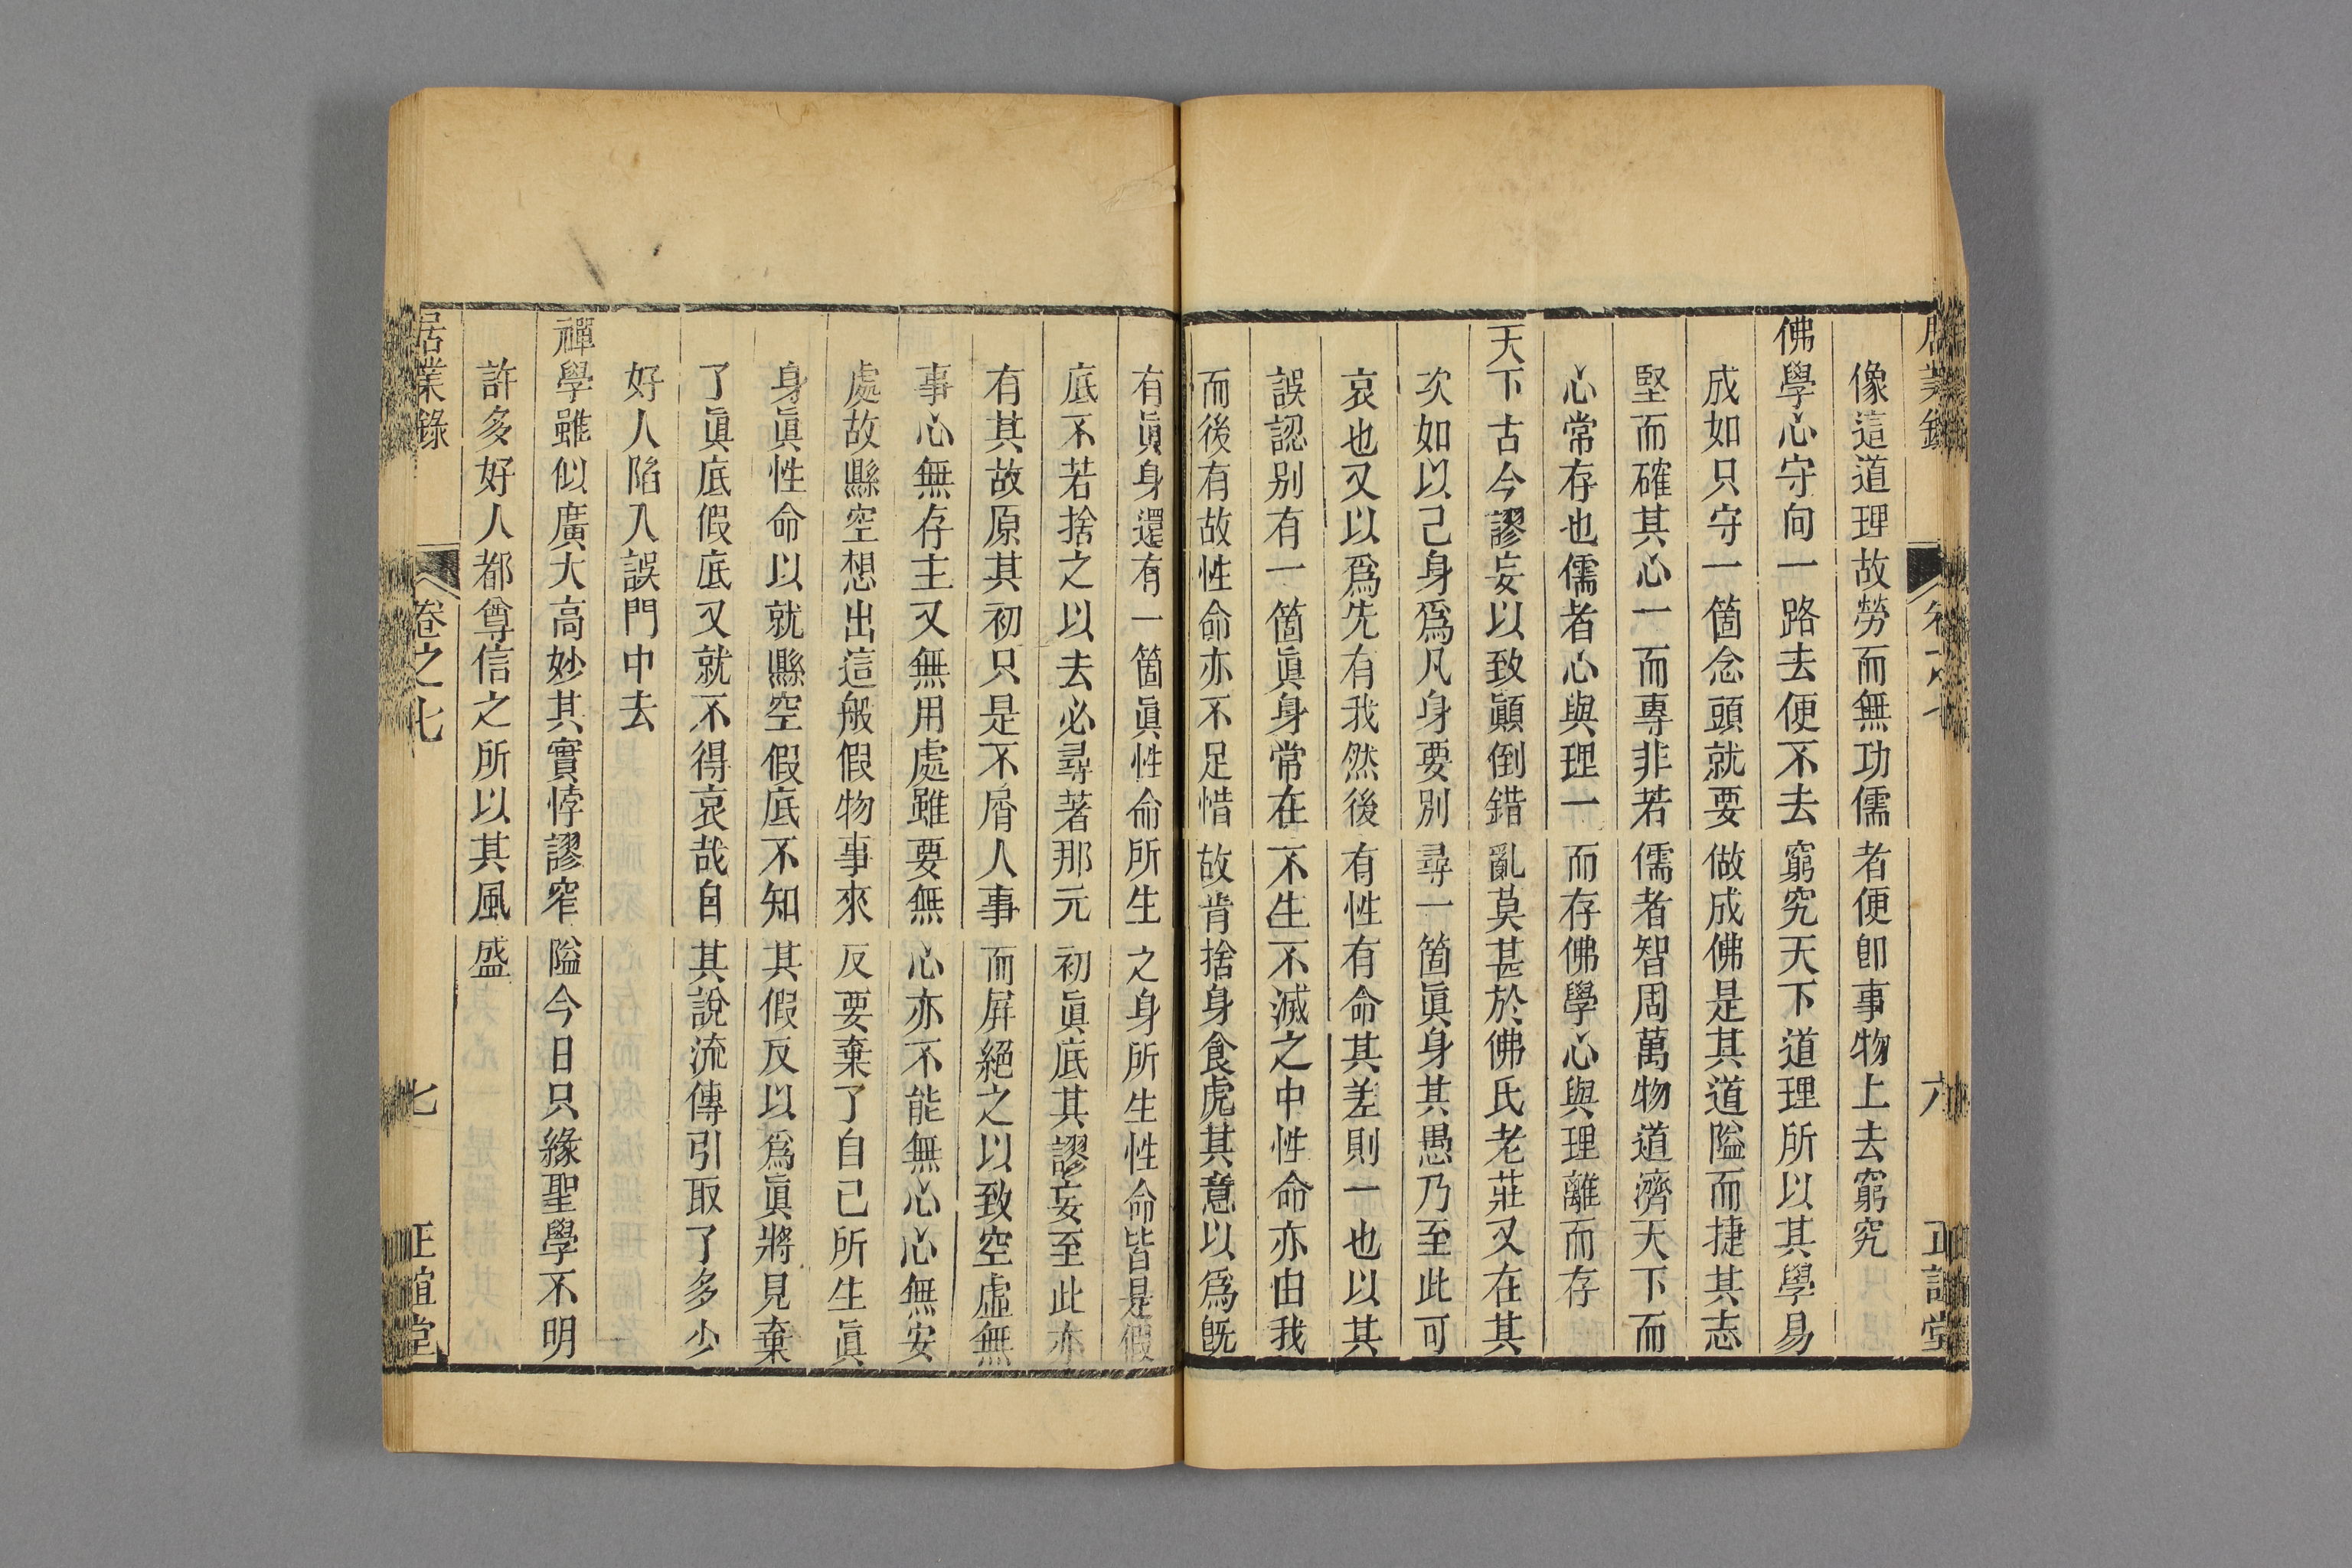 居業錄 卷之七 六 正誼堂
像這道理故勞而無功儒者便卽事物上去窮究
佛學心守向一路去便不去窮究天下道理所以其學易
成如只守一箇念頭就要做成佛是其道隘而捷其志
堅而確其心一而專非若儒者智周萬物道濟天下而
心常存也儒者心與理一而存佛學心與理離而存
天下古今謬妄以致顚倒錯亂莫甚於佛氏老莊又在其
次如以己身爲凡身要別尋一箇眞身其愚乃至此可
哀也又以爲先有我然後有性有命其差則一也以其
誤認別有一箇眞身常在不生不滅之中性命亦由我
而後有故性命亦不足惜故肯捨身食虎其意以爲旣
有眞身還有一箇眞性命所生之身所生性命皆是假
底不若捨之以去必尋著那元初眞底其謬妄至此亦
有其故原其初只是不屑人事而屛絕之以致空虛無
事心無存主又無用處雖要無心亦不能無心心無安
處故縣空想出這般假物事來反要棄了自己所生眞
身眞性命以就縣空假底不知其假反以爲眞將見棄
了眞底假底又就不得哀哉自其說流傳引取了多少
好人陷入誤門中去
禪學雖似廣大高妙其實悖謬窄隘今日只緣聖學不明
許多好人都尊信之所以其風盛
居業錄 卷之七 七 正誼堂